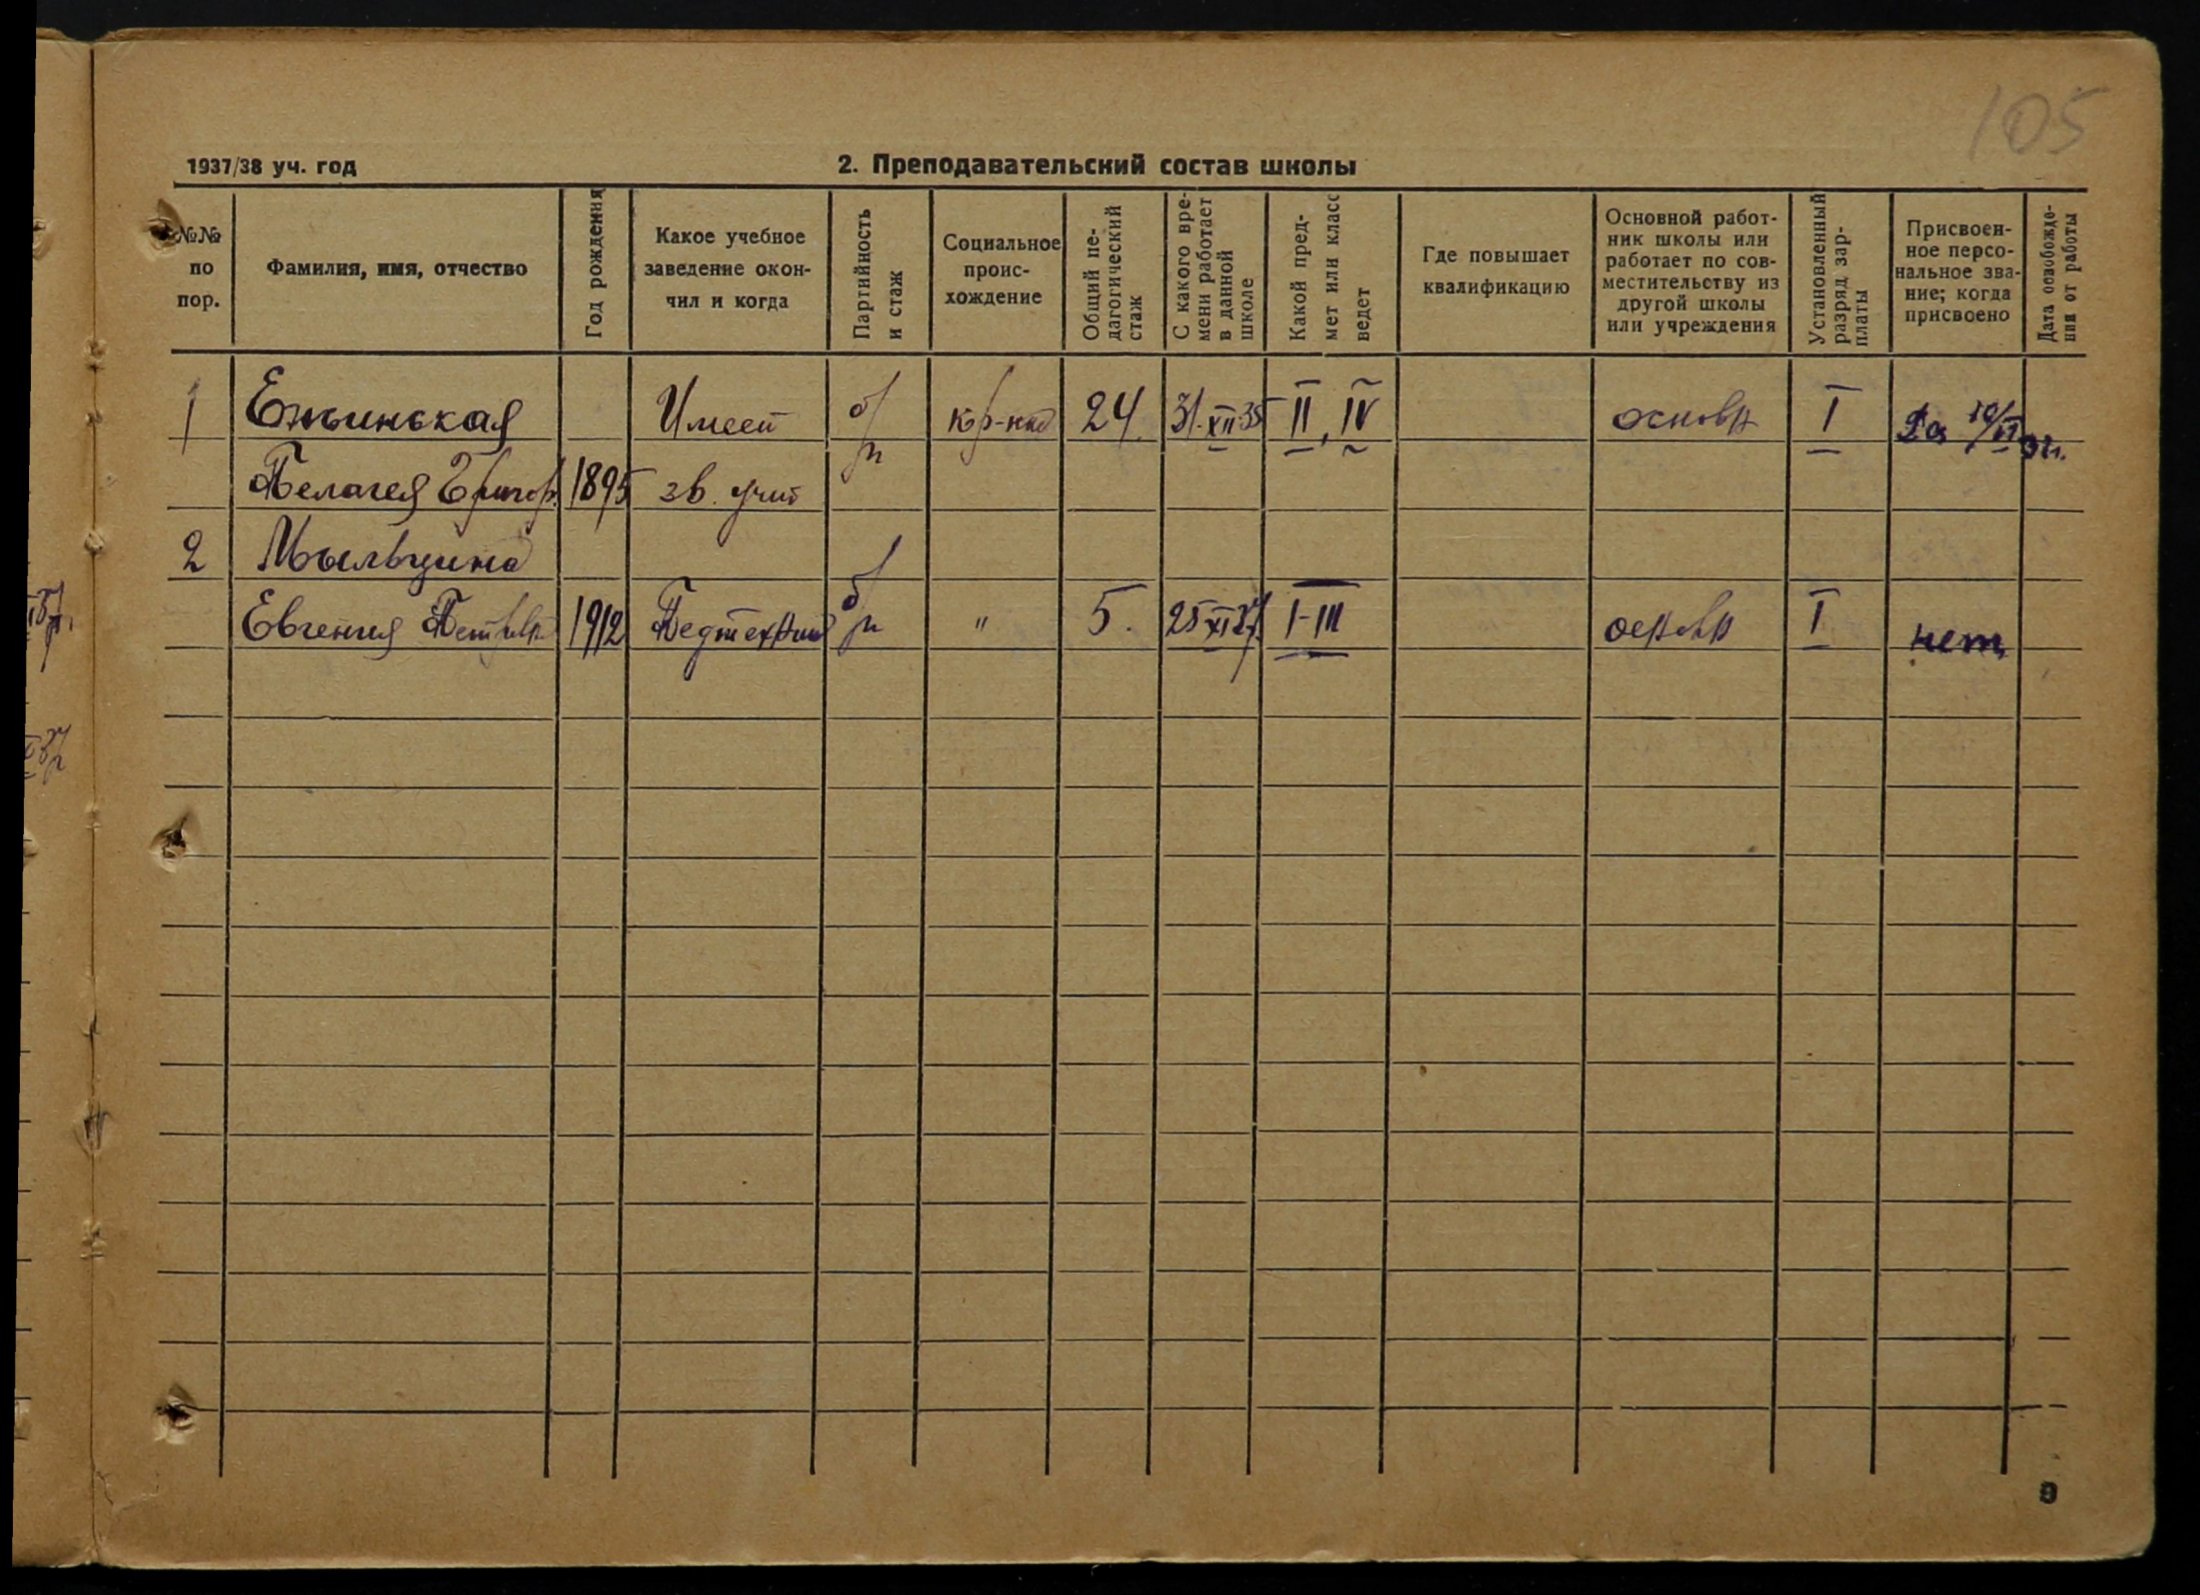 105
1937/38 уч. год 2. Преподавательский состав школы
№№ по пор.
Фамилия, имя, отчество
Год рождения
Какое учебное заведение окончил и когда
Партийность и стаж
Социальное происхождение
Общий педагогический стаж
С какого времени работает в данной школе
Какой предмет или класс ведет
Где повышает квалификацию
Основной работник школы или работает по совместительству из другой школы или учреждения
Установленный разряд зарплаты
Присвоенное персональное звание; когда присвоено
Дата освобождения от работы
1 Имеет б/п кр-ка 24 31-XII-35 II, IV основн I Да
Пелагея Григор. 1895 зв. учит
2
Евгения Петровн 1912 Педтехникум б/п " 5. I-III основн I нет
9